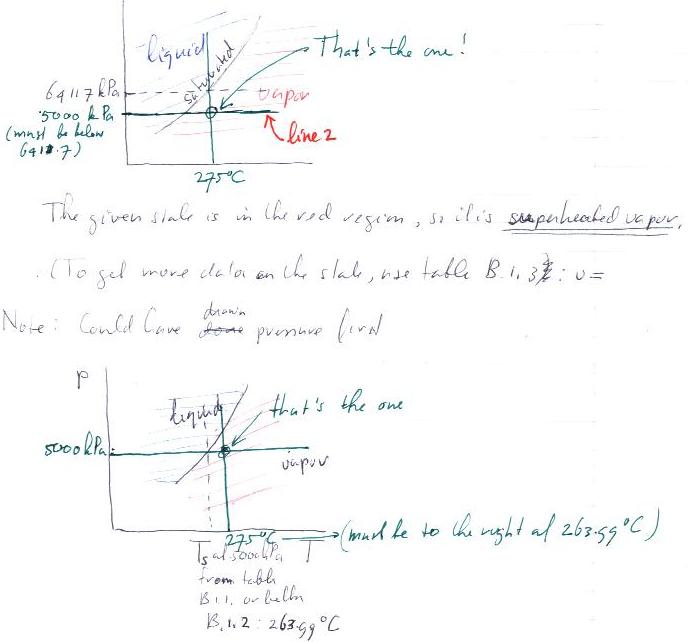 liquid
saturated
That's the one!
6411.7 kPa
vapor
5000 kPa
(must be below
6411.7)
line 2
275°C
The given state is in the red region, so it is superheated vapor.
(To get more data on the state, use table B.1.3: v =
Note: Could have drawn pressure first
P
liquid
that's the one
5000 kPa
vapor
275°C
T
(must be to the right of 263.99°C)
Ts at 5000 kPa
from table
B.1.1. or better
B.1.2: 263.99°C